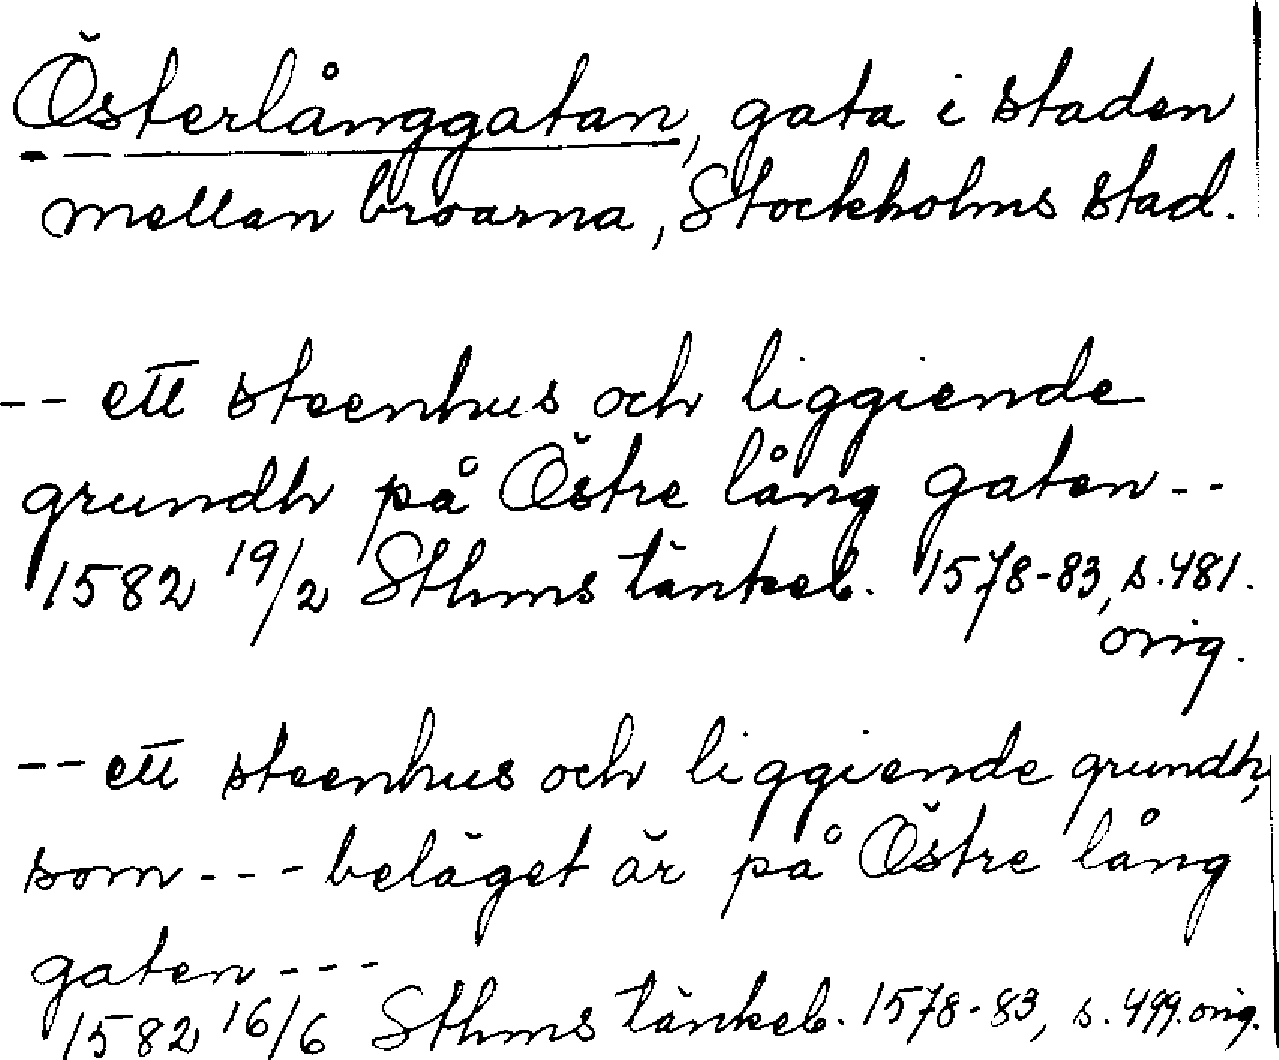 Österlånggatan, gata i staden
mellan broarna, Stockholms stad.
-- ett steenhus och liggiende
grundh på Östre lång gaten --
1582 19/2 Sthms tänkeb. 1578-83, s. 481.
orig.
-- ett steenhus och liggiende grundh,
som --- beläget är på Östre lång
gaten ---
1582 16/6 Sthms tänkeb. 1578-83, s. 499. orig.